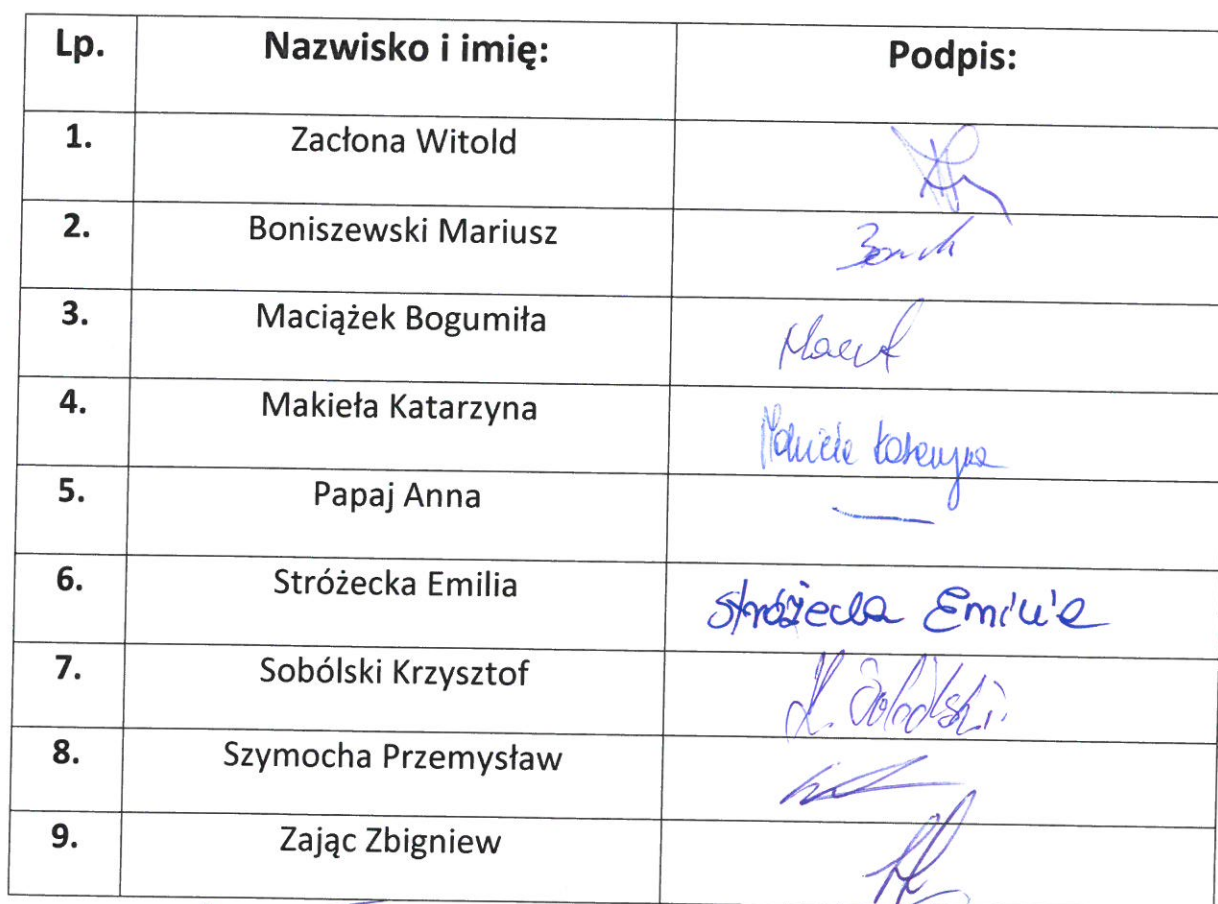 Lp. Nazwisko i imię: Podpis:
1. Zacłona Witold
2. Boniszewski Mariusz
3. Maciążek Bogumiła
4. Makieła Katarzyna
5. Papaj Anna
6. Stróżecka Emilia Stróżecka Emilia
7. Sobólski Krzysztof
8. Szymocha Przemysław
9. Zając Zbigniew